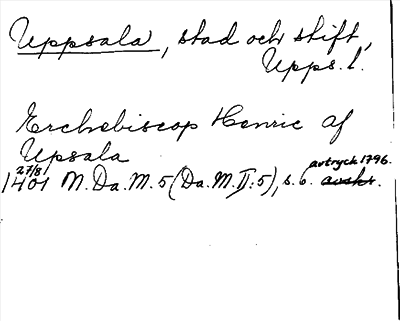 Uppsala, stad och stift,
Upps. l.
Erchebiscop Henric af
Upsala
27/8
avtryck 1796.
1401 M. Da. M. 5 (Da. M. II:5), s. 6. avskr.